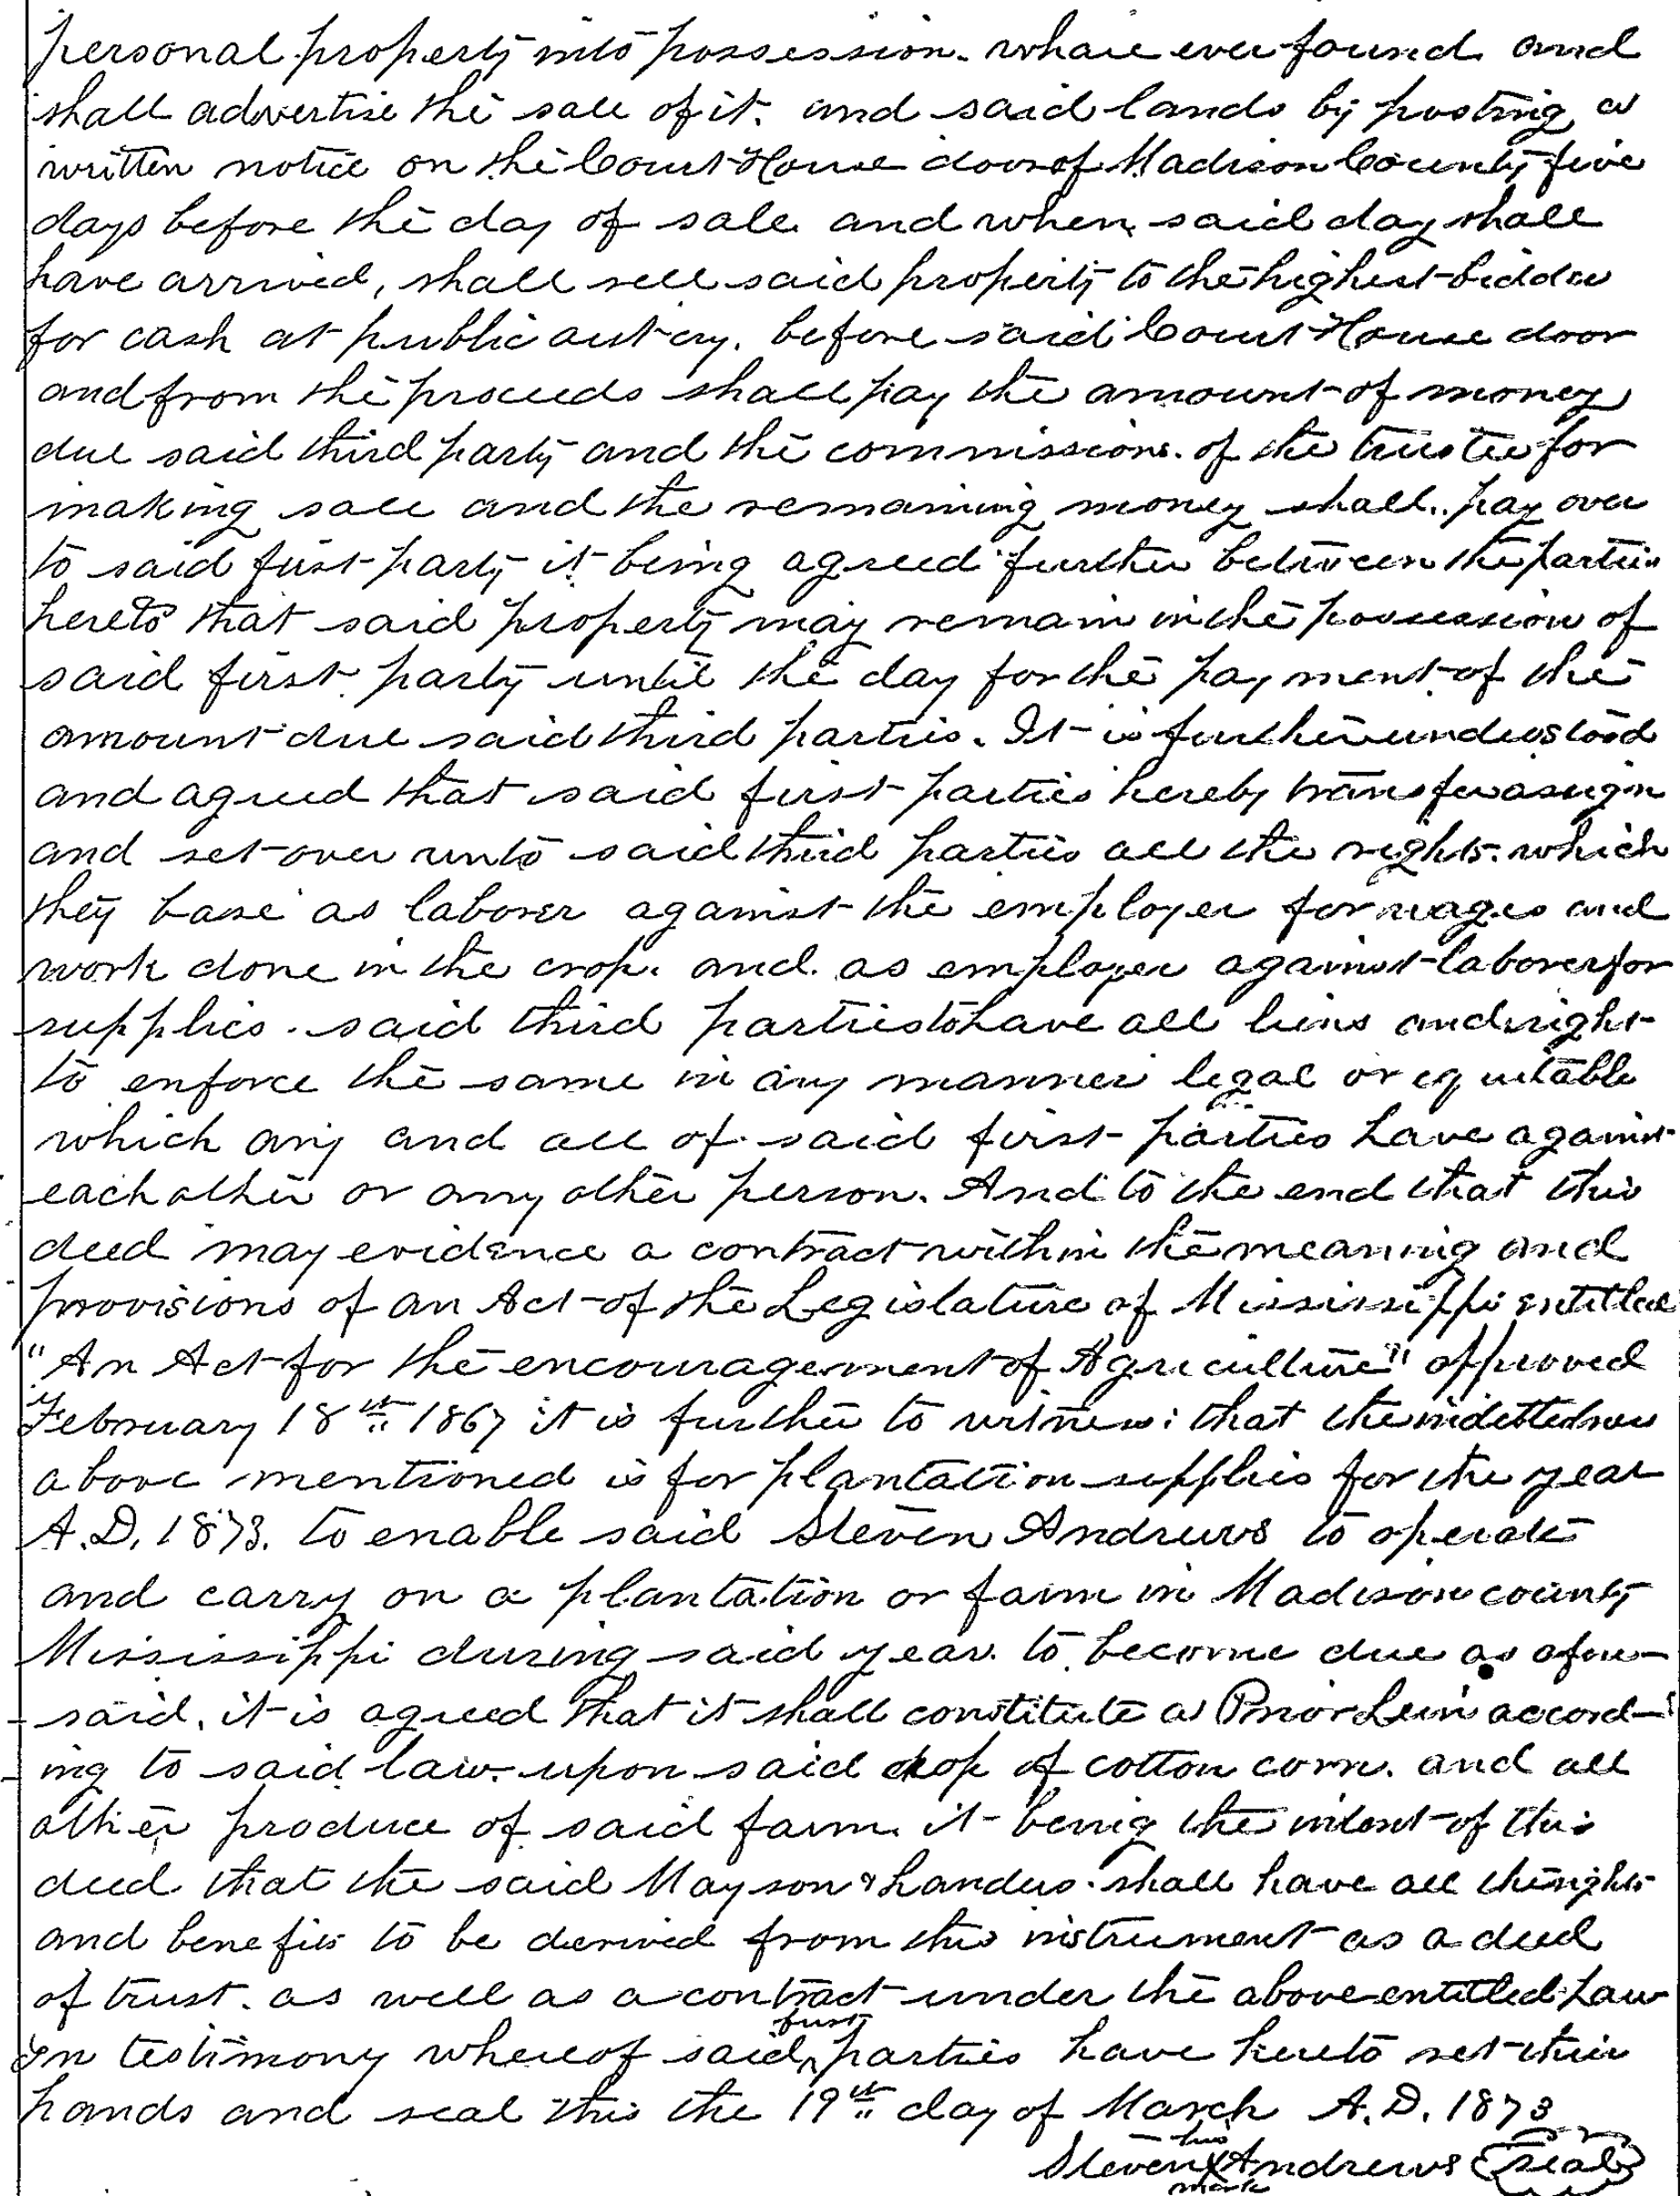 personal property into possession. whare ever found and
shall advertise the sale of it. and said lands by posting a
written notice on the Court House door of Madison County five
days before the day of sale and when said day shall
have arrived, shall sell said property to the highest bidder
for cash at public outcry. before said Court House door
and from the proceeds shall pay the amount of money
due said third party and the commissions. of the trustee for
making sale and the remaining money shall.. pay over
to said first party it being agreed further between the parties
hereto that said property may remain in the possession of
said first party until the day for the payment of the
amount due said third parties. It is further understood
and agreed that said first parties hereby transfer assign
and set over unto said third parties all the rights. which
they have as laborer against the employer for wages and
work done in the crop. and. as employer against laborer for
supplies. said third parties to have all liens and right
to enforce the same in any manner legal or equitable
which any and all of said first parties have against
each other or any other person. And to the end that this
deed may evidence a contract within the meaning and
provisions of an Act of the Legislature of Mississippi entitled
"An Act for the encouragement of Agriculture" approved
February 18th 1867 it is further to witness: that the indebtedness
above mentioned is for plantation supplies for the year
A.D. 1873. to enable said Steven Andrews to operate
and carry on a plantation or farm in Madison county
Mississippi during said year. to become due as afore-
said, it is agreed that it shall constitute a Prior Lein accord-
ing to said law. upon said crop of cotton corn. and all
other produce of said farm. it being the intent of this
deed that the said Mayson & Landers. shall have all the rights
and benefits to be derived from this instrument as a deed
of trust. as well as a contract under the above entitled Law
In testimony whereof said first parties have hereto set their
hands and seal this the 19th day of March A.D. 1873
Steven his X mark Andrews Seal